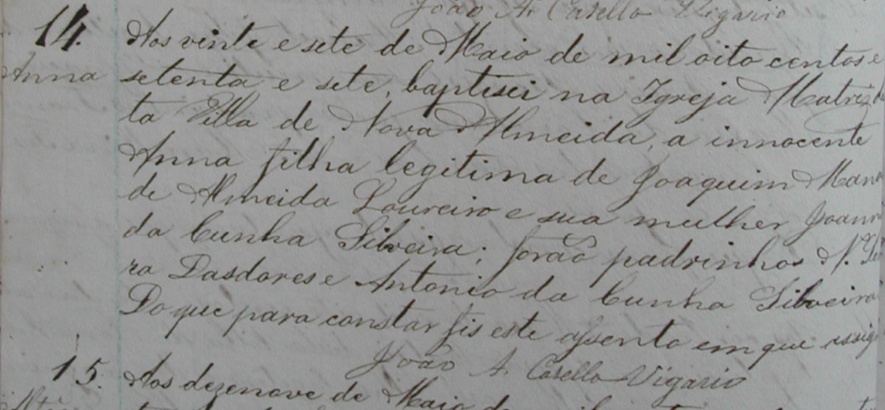 João A. Casella Vigario
14. Aos vinte e sete de Maio de mil oito centos e
Anna setenta e sete, baptisei na Igreja Matriz d
ta Villa de Nova Almeida, a innocente
Anna filha legitima de Joaquim Mano
de Almeida Loureiro e sua mulher Joann
da Cunha Silveira; forão padrinhos N. Sen
ra Dasdores e Antonio da Cunha Silveira
Do que para constar fis este assento em que assig
João A. Casella Vigario
15. Aos dezenove de Maio de mil